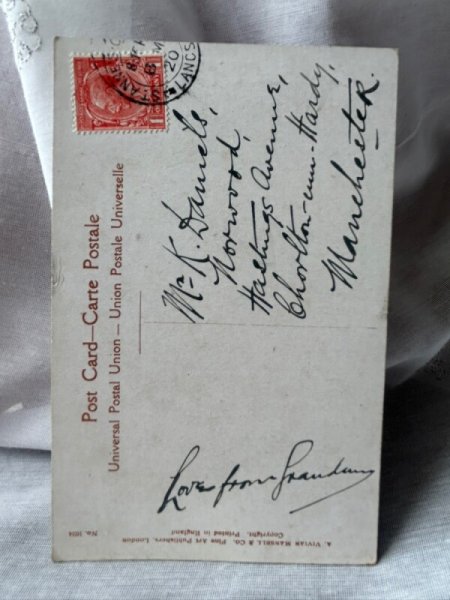 Post Card—Carte Postale
Universal Postal Union — Union Postale Universelle
ST ANNES
LANCS
20
1
Love from Grandam
Mr K. Daniels,
Norwood,
Hastings Avenue,
Chorlton-cum-Hardy,
Manchester.
No. 1034
A. VIVIAN MANSELL & Co. Fine Art Publishers, London
Copyright. Printed in England